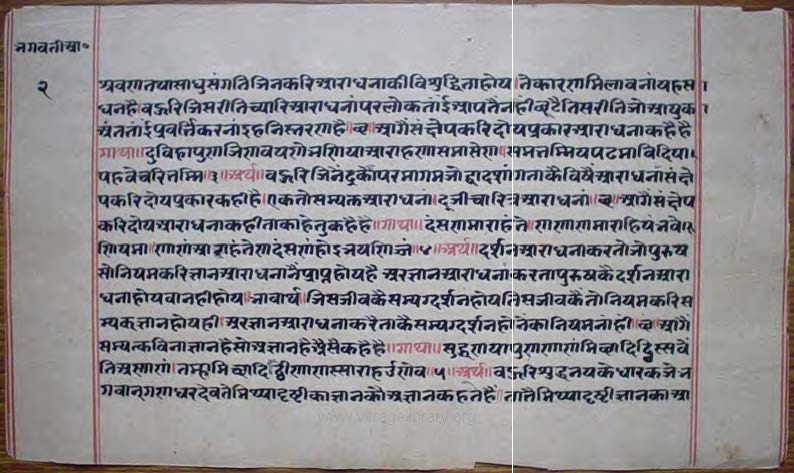 भगवतीआ०
२
श्रवणतथासाधुसंगतिजिनकरिआराधनाकीविशुद्धिताहोय।तेकारणमिलावनांयहस
धनहै।बहुरिजिसरीतिच्यारिआराधनांपरलोकतांईआपतेनहीछूटैतिसरीतिजोआयुका
अंततांईप्रवर्त्तिकरनांइहनिस्तरणहै।आगैंसंक्षेपकरिदोयप्रकारआराधनाकहैहै
गाथा॥दुविहापुणजिणवयणेभणियाआराहणासमासेण।सम्मत्तम्मियपढमाविदिया
यहवेचरित्तम्मि॥३॥अर्थ॥बहुरिजिनेंद्रकोपरमागमजोद्वादशांगताकेविषैंआराधनांसंक्षे
पकरिदोयप्रकारकहीहै।एकतोसम्यक्तआराधनां।दूजीचारित्रआराधनां।आगैंसंक्षेप
करिदोयआराधनाकहीताकाहेतुकहैहै॥गाथा॥दंसणमाराहंतेणणाणमाराहियंभवे।
णियमा।णाणंआराहंतेणदंसणंहोइभयणिज्जं॥४॥अर्थ॥दर्शनआराधनाकरतोजोपुरुष
सोनियमकरिज्ञानआराधनानैंप्राप्तहोयहैअरज्ञानआराधनांकरतापुरुषकैदर्शनआरा
धनाहोयवानहीहोय॥भावार्थ॥जिसजीवकैसम्यग्दर्शनहोयतिसजीवकैतोनियमकरिस
म्यक्ज्ञानहोयही।अरज्ञानआराधनाकरताकैसम्यग्दर्शनहोनेंकानियमनांही।आगैं
सम्यत्कविनाज्ञानहैसोअज्ञानहैअैसैकहैहै॥गाथा॥सुद्धणयापुणणाणंमिच्छादिट्ठिस्सवें
तिअणाणं।तम्हामिच्छादिट्ठीणाणस्साराहउणेव॥५॥अर्थ॥बहुरिशुद्धनयकेधारकजेभ
गवान्गणधरदेवतेमिथ्यादृष्टीकाज्ञानकौअज्ञानकहतेहैं।तातैंमिथ्यादृष्टीज्ञानकाआ
www.vitragelibrary.org